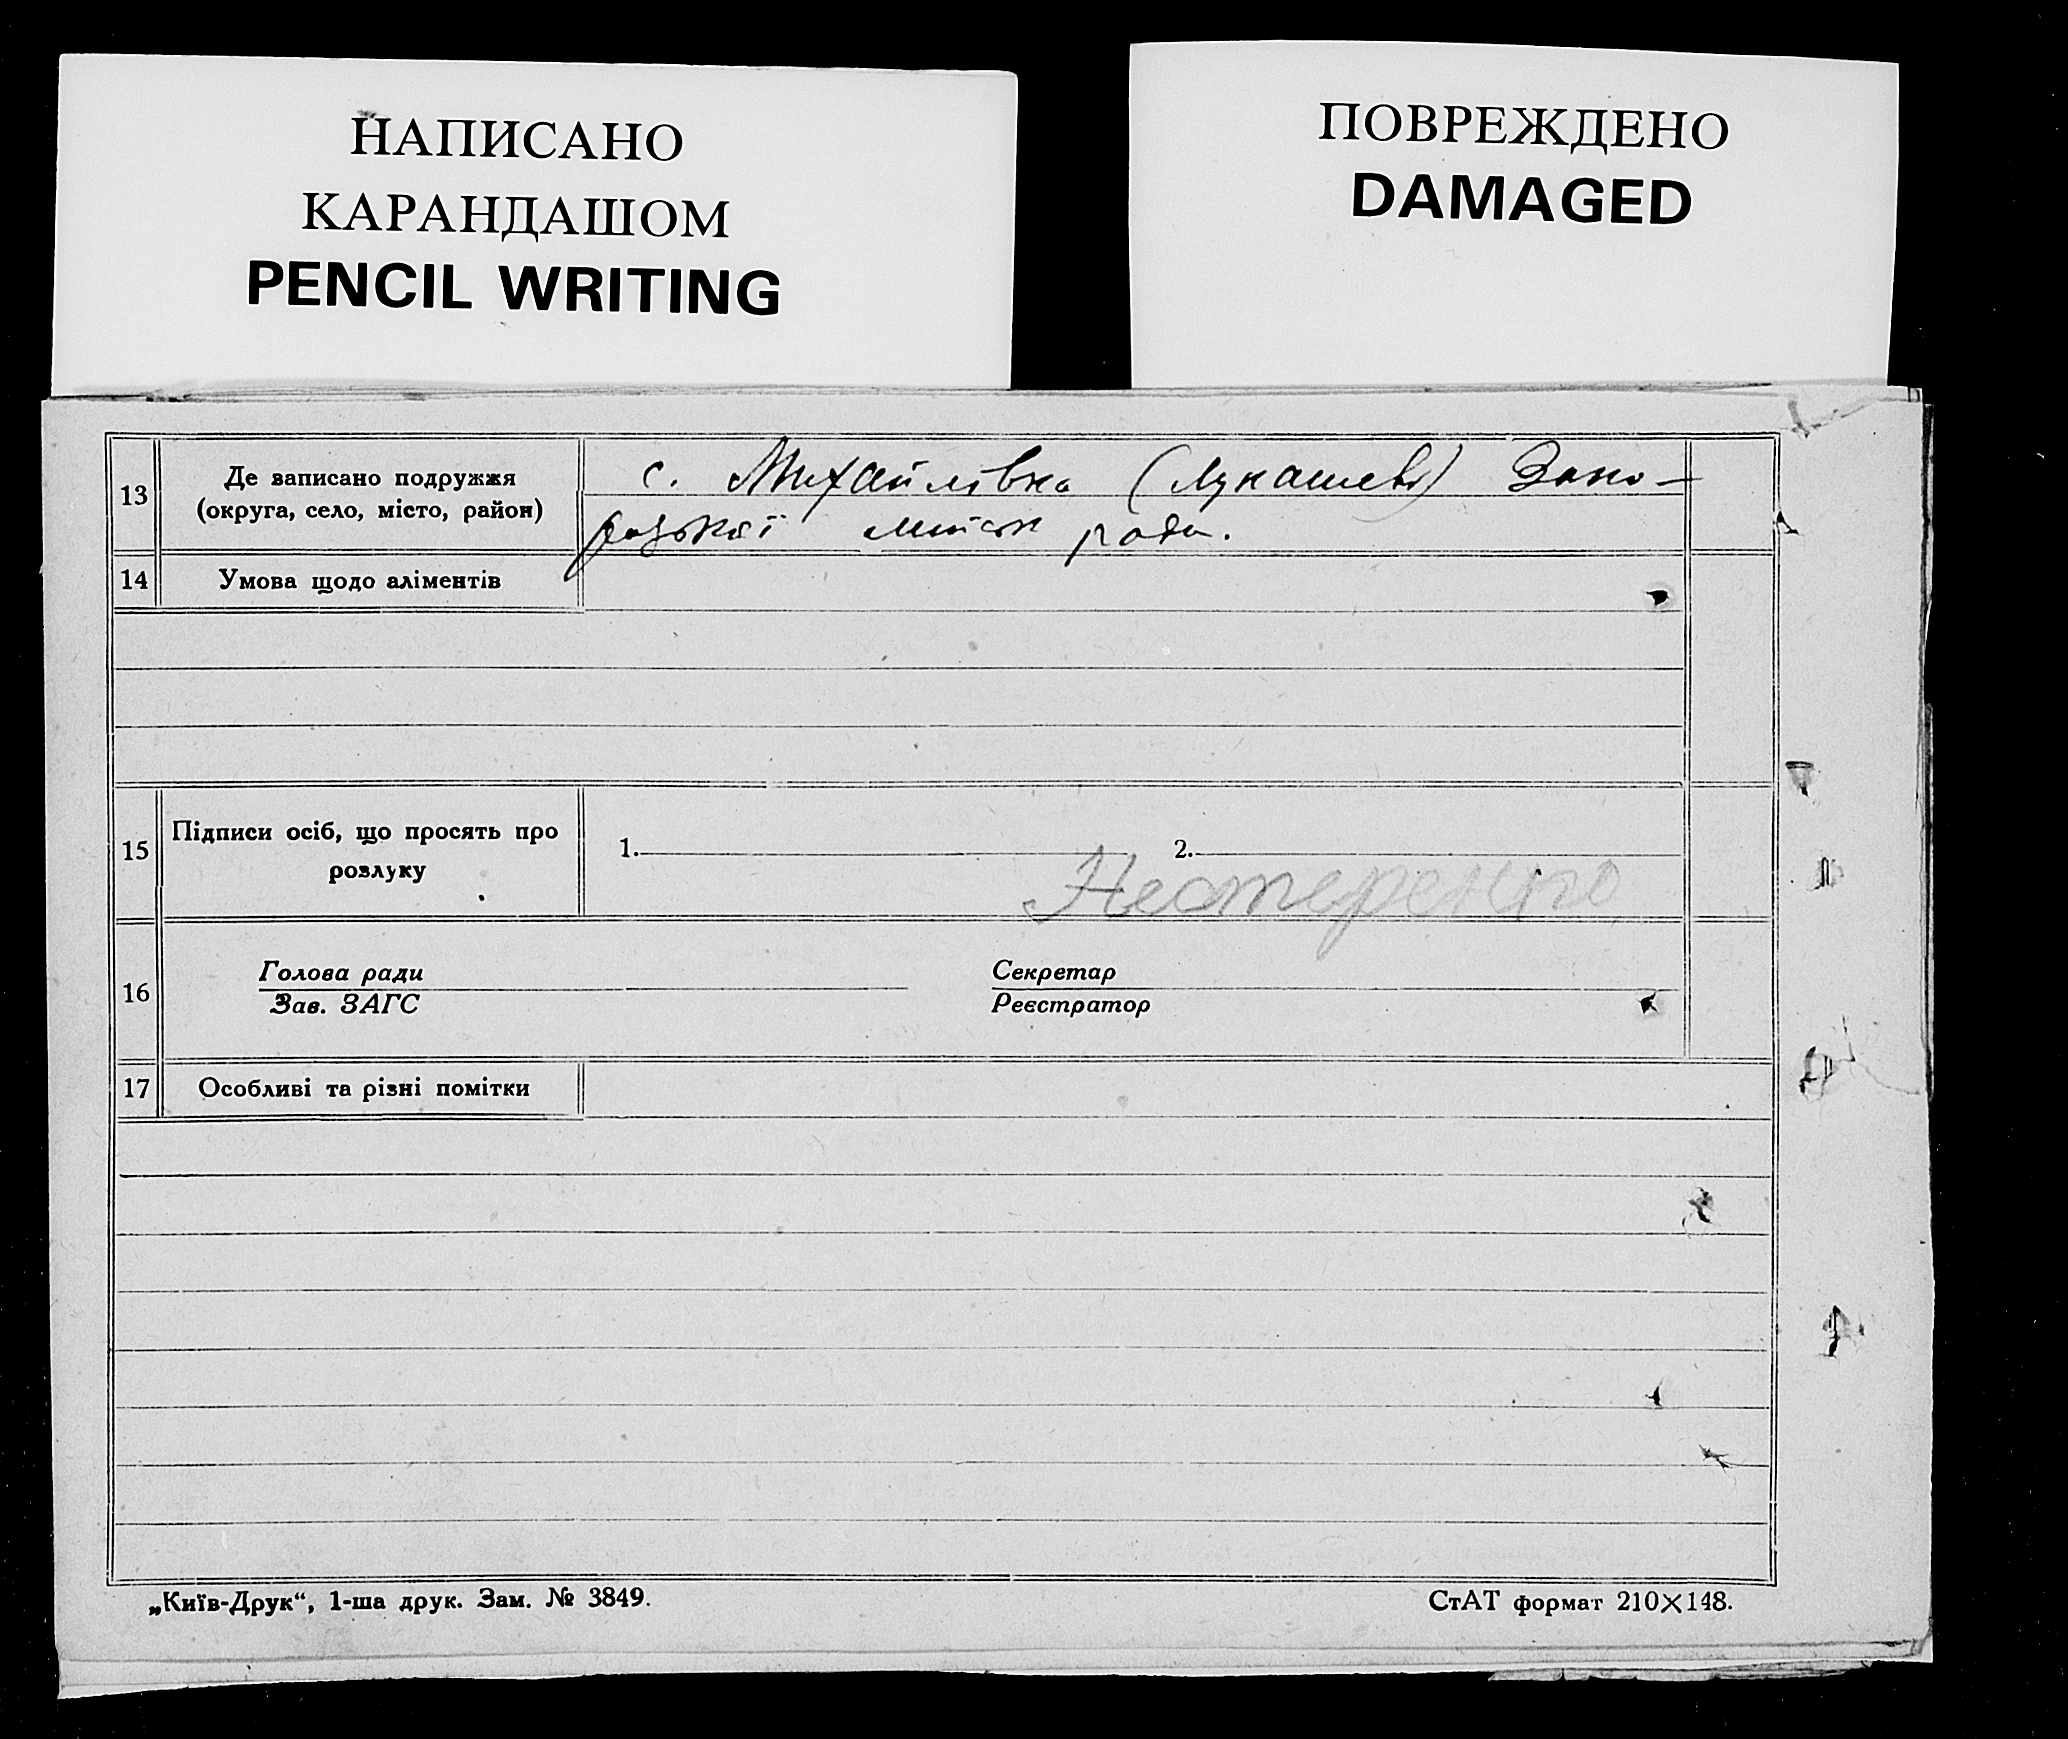 НАПИСАНО
КАРАНДАШОМ
PENCIL WRITING
ПОВРЕЖДЕНО
DAMAGED
13
Де записано подружжя
(округа, село, місто, район)
с. Михайлівка (Лукашеве) Запо-
різької міськ ради.
14
Умова щодо аліментів
15
Підписи осіб, що просять про
розлуку
1.
2.
Нестеренко
16
Голова ради
Зав. ЗАГС
Секретар
Реєстратор
17
Особливі та різні помітки
„Київ-Друк“, 1-ша друк. Зам. № 3849.
СтАТ формат 210×148.